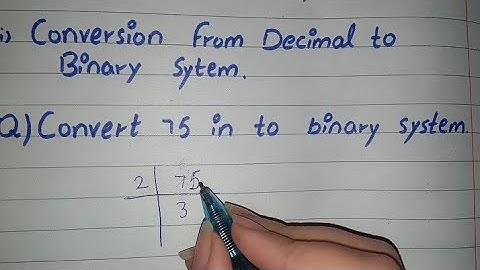 i) Conversion from Decimal to
Binary Sytem.
Q) Convert 75 in to binary system.
2 75
3